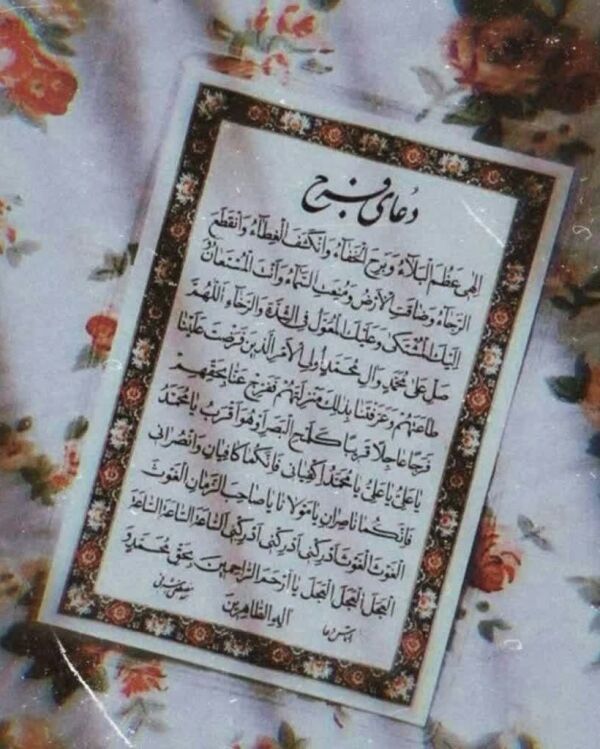 دعای فرج
اِلٰهی عَظُمَ الْبَلآءُ وَبَرِحَ الْخَفآءُ وَانْکَشَفَ الْغِطآءُ وَانْقَطَعَ
الرَّجآءُ وَضاقَتِ الْاَرْضُ وَمُنِعَتِ السَّمآءُ وَاَنْتَ الْمُسْتَعانُ وَ
اِلَیْکَ الْمُشْتَکیٰ وَعَلَیْکَ الْمُعَوَّلُ فِی الشِّدَّةِ وَالرَّخآءِ اَللّٰهُمَّ
صَلِّ عَلیٰ مُحَمَّدٍ وَآلِ مُحَمَّدٍ اُولِی الْاَمْرِ الَّذینَ فَرَضْتَ عَلَیْنا
طاعَتَهُمْ وَعَرَّفْتَنا بِذٰلِکَ مَنْزِلَتَهُمْ فَفَرِّجْ عَنّا بِحَقِّهِمْ
فَرَجاً عاجِلاً قَریباً کَلَمْحِ الْبَصَرِ اَوْ هُوَ اَقْرَبُ یا مُحَمَّدُ
یا عَلِیُّ یا عَلِیُّ یا مُحَمَّدُ اِکْفِیانی فَاِنَّکُما کافِیانِ وَانْصُرانی
فَاِنَّکُما ناصِرانِ یا مَوْلانا یا صاحِبَ الزَّمانِ الْغَوْثَ
الْغَوْثَ الْغَوْثَ اَدْرِکْنی اَدْرِکْنی اَدْرِکْنی اَلسّاعَةَ السّاعَةَ السّاعَةَ
اَلْعَجَلَ الْعَجَلَ الْعَجَلَ یا اَرْحَمَ الرّاحِمینَ بِحَقِّ مُحَمَّدٍ وَ
آلِهِ الطّاهِرینَ
التماس دعا